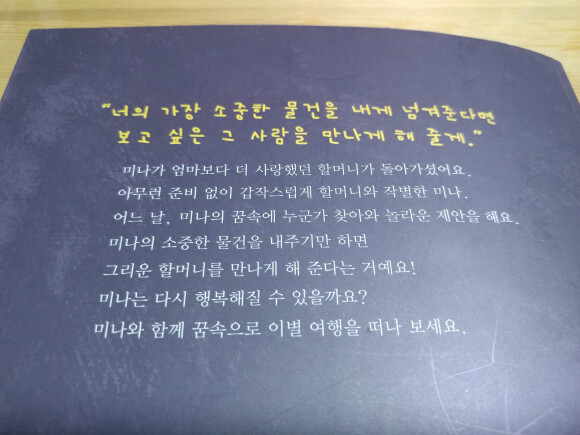 “너의 가장 소중한 물건을 내게 넘겨준다면
보고 싶은 그 사람을 만나게 해 줄게.”
미나가 엄마보다 더 사랑했던 할머니가 돌아가셨어요.
아무런 준비 없이 갑작스럽게 할머니와 작별한 미나.
어느 날, 미나의 꿈속에 누군가 찾아와 놀라운 제안을 해요.
미나의 소중한 물건을 내주기만 하면
그리운 할머니를 만나게 해 준다는 거예요!
미나는 다시 행복해질 수 있을까요?
미나와 함께 꿈속으로 이별 여행을 떠나 보세요.